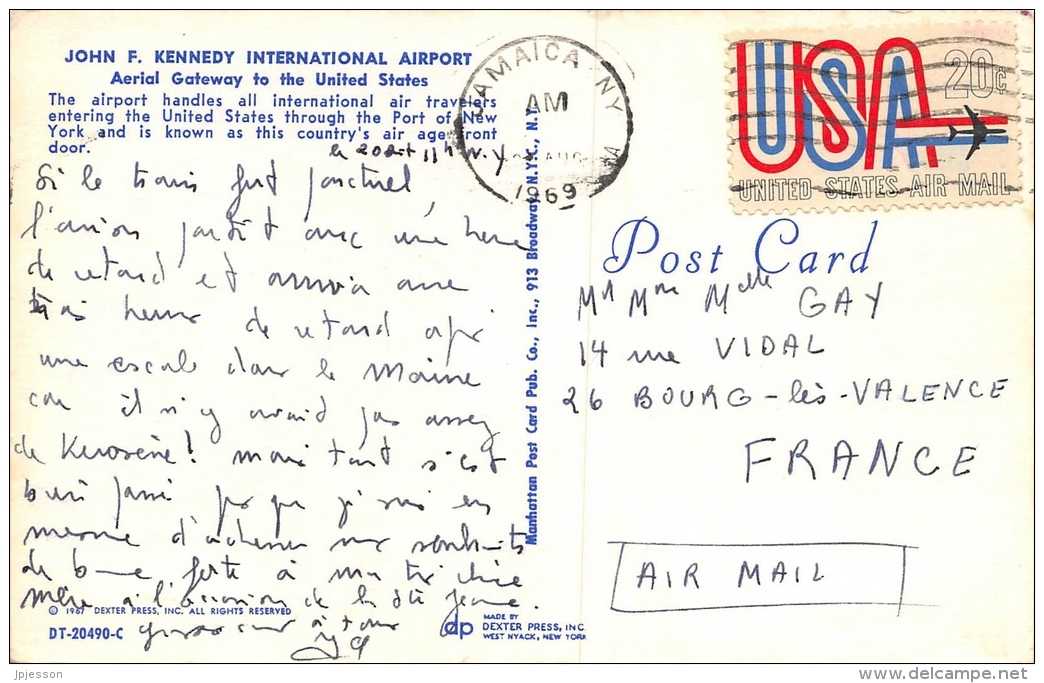 JOHN F. KENNEDY INTERNATIONAL AIRPORT
Aerial Gateway to the United States
The airport handles all international air travelers
entering the United States through the Port of New
York and is known as this country's air age front
door.
le 20 août 11h N.Y
Si le train fut ponctuel
l'avion partit avec une heure
de retard et arriva avec
trois heures de retard après
une escale dans le Maine
car il n'y avait pas assez
de Kérosène! mais tout s'est
bien passé que je suis en
mesure d'adresser mes souhaits
de bonne fête à ma très chère
mère à l'occasion de la Ste Jeanne.
à tous
© 1967 DEXTER PRESS, INC. ALL RIGHTS RESERVED
DT-20490-C
Manhattan Post Card Pub. Co., Inc., 913 Broadway, N.Y.C., N.Y.
dp
MADE BY
DEXTER PRESS, INC.
WEST NYACK, NEW YORK
JAMAICA NY
AM
AUG
1969
USA
20c
UNITED STATES AIR MAIL
Post Card
Mr Mme Melle GAY
14 rue VIDAL
26 BOURG-lès-VALENCE
FRANCE
AIR MAIL
jpjesson
delcampe.net